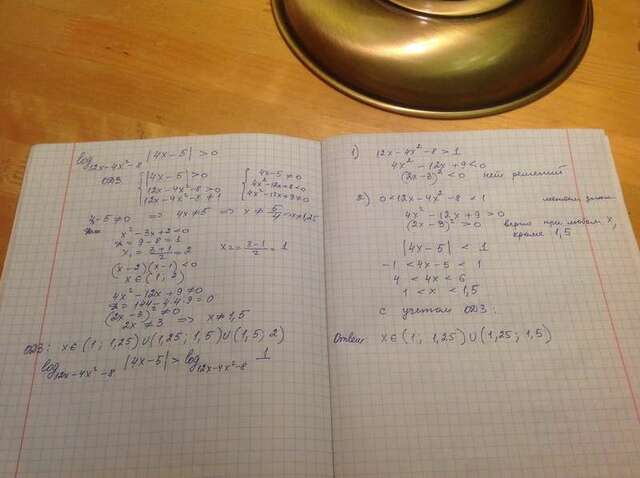 log 12x-4x²-8 |4x-5| > 0
ОДЗ
|4x-5| > 0
12x-4x²-8 > 0
12x-4x²-8 ≠ 1
4x-5 ≠ 0
4x²-12x+8 < 0
4x²-12x+9 ≠ 0
4x-5 ≠ 0 => 4x ≠ 5 => x ≠ 5/4 => x ≠ 1,25
x²-3x+2 < 0
D = 9-8 = 1
x₁ = (3+1)/2 = 2 x₂ = (3-1)/2 = 1
(x-2)(x-1) < 0
x ∈ (1; 2)
4x²-12x+9 ≠ 0
D = 144-4·4·9 = 0
(2x-3)² ≠ 0
2x ≠ 3 => x ≠ 1,5
ОДЗ: x ∈ (1; 1,25) U (1,25; 1,5) U (1,5; 2)
log 12x-4x²-8 |4x-5| > log 12x-4x²-8 1
1) 12x-4x²-8 > 1
4x²-12x+9 < 0
(2x-3)² < 0 нет решений
2) 0 < 12x-4x²-8 < 1 меняем знак
4x²-12x+9 > 0
(2x-3)² > 0 верно при любом x,
кроме 1,5
|4x-5| < 1
-1 < 4x-5 < 1
4 < 4x < 6
1 < x < 1,5
с учетом ОДЗ:
Ответ x ∈ (1; 1,25) U (1,25; 1,5)